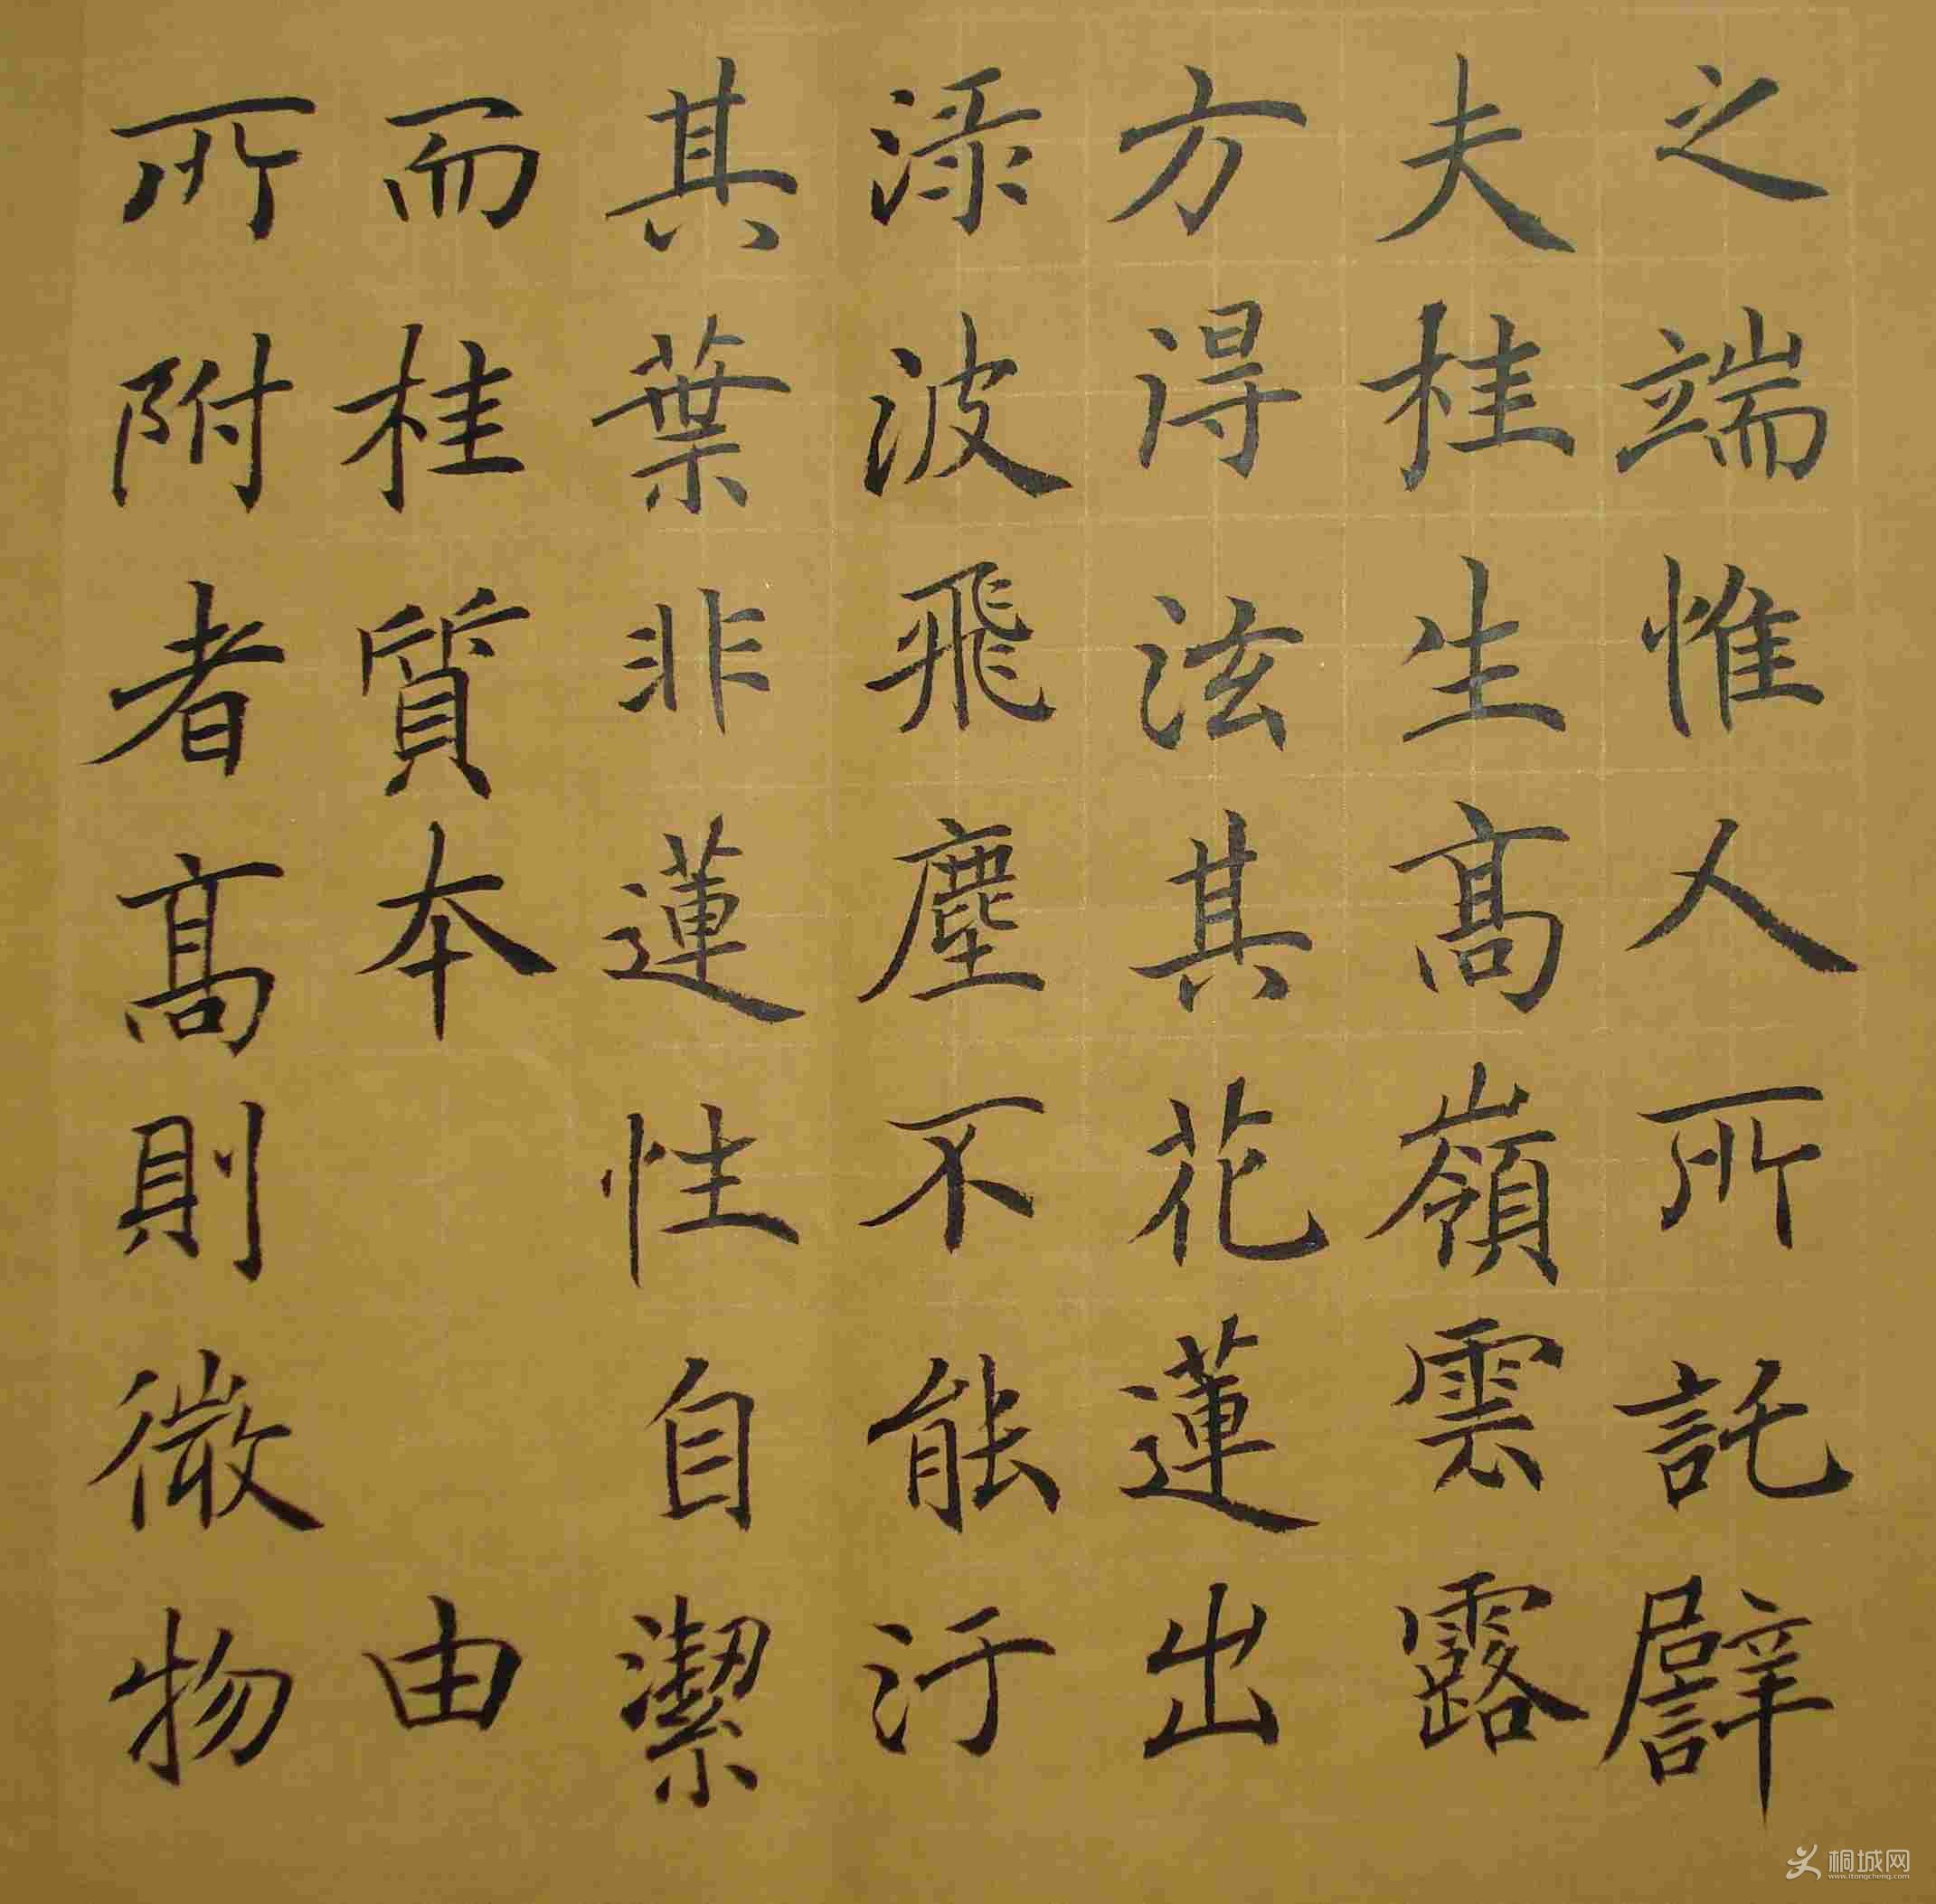 之端惟人所託譬
夫桂生髙嶺雲露
方得泫其花蓮出
淥波飛塵不能汙
其葉非蓮性自潔
而桂質本 由
所附者髙則微物
桐城网
www.itongcheng.com